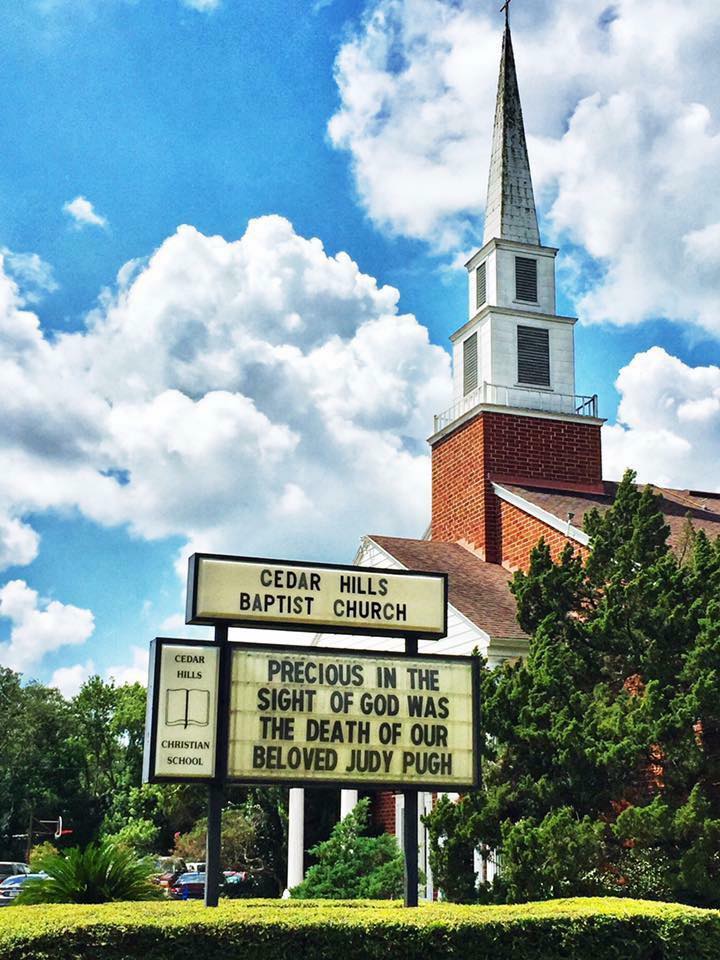 CEDAR HILLS
BAPTIST CHURCH
CEDAR
HILLS
CHRISTIAN
SCHOOL
PRECIOUS IN THE
SIGHT OF GOD WAS
THE DEATH OF OUR
BELOVED JUDY PUGH